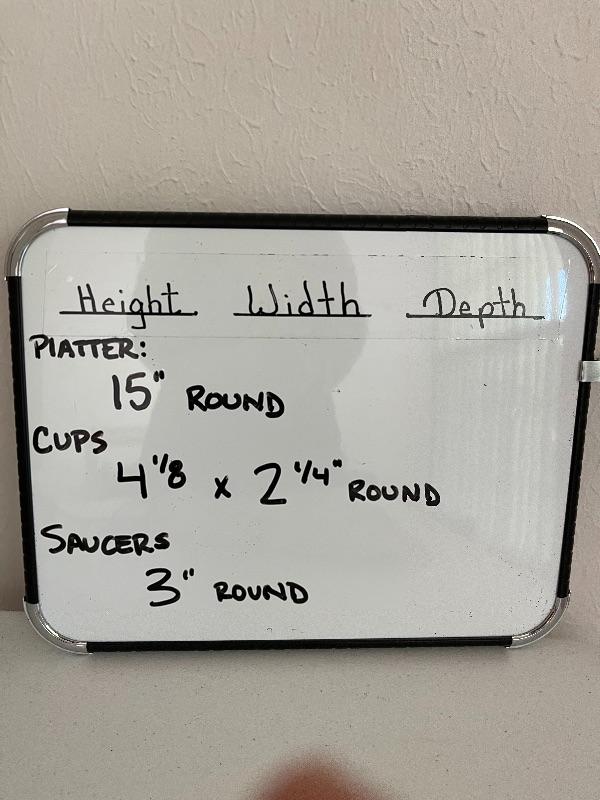 Height Width Depth
PLATTER:
15" ROUND
CUPS
4 1/8 x 2 1/4" ROUND
SAUCERS
3" ROUND